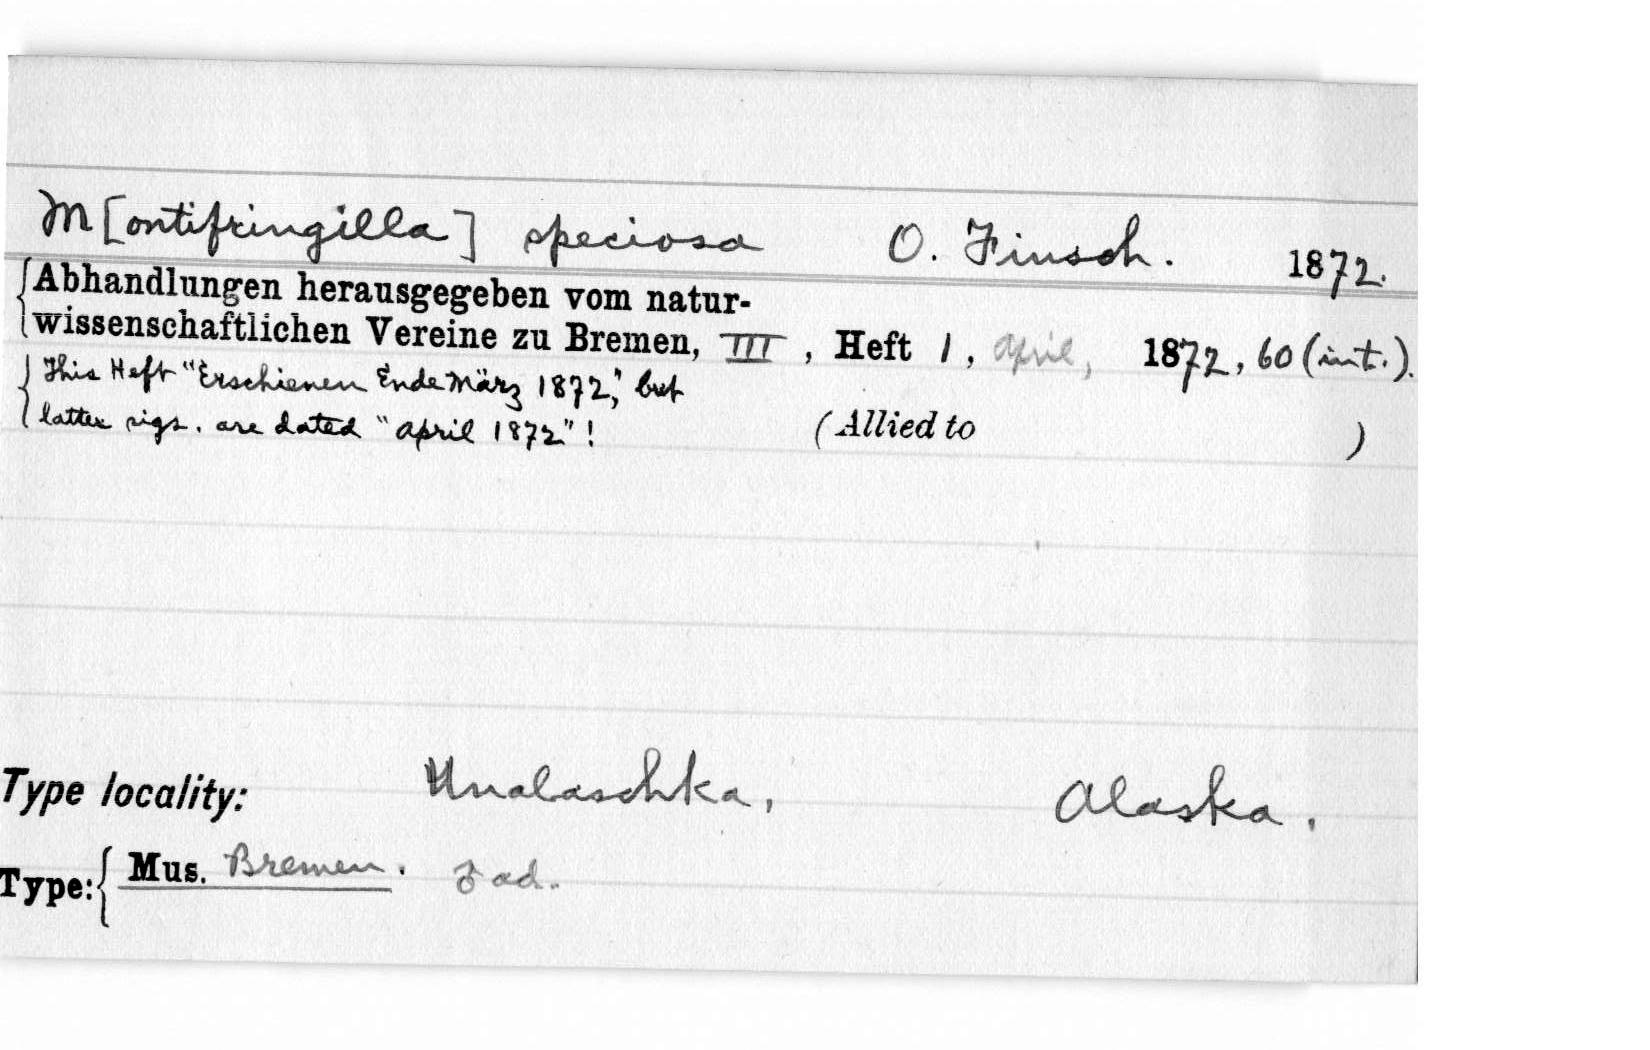 M[ontifringilla] speciosa O. Finsch. 1872.
Abhandlungen herausgegeben vom natur-
wissenschaftlichen Vereine zu Bremen, III, Heft 1, April, 1872, 60 (int.).
This Heft "Erschienen Ende März 1872," but
latter sigs. are dated "April 1872"!
(Allied to )
Type locality: Unalaschka, Alaska.
Type: Mus. Bremen. ♂ ad.